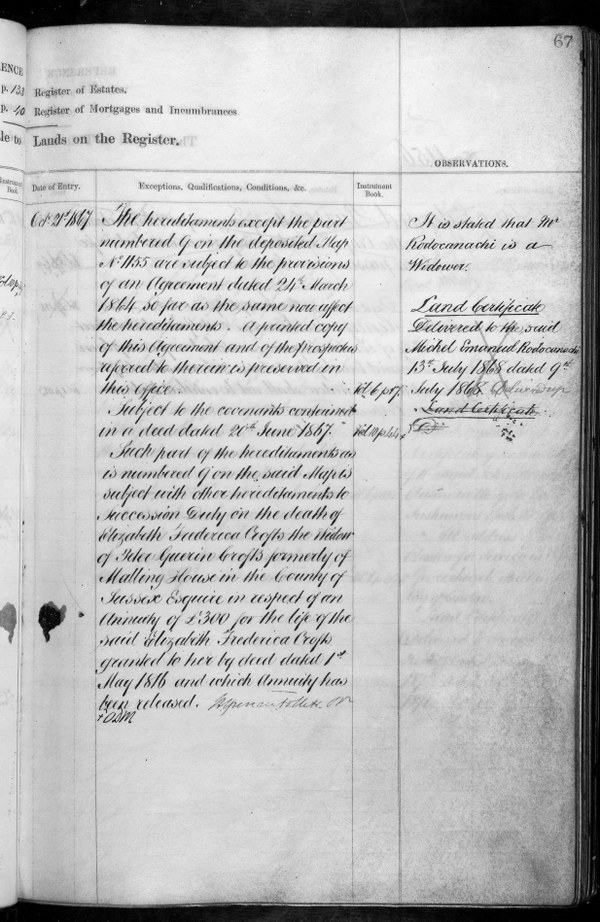 67
ENCE
p. 133
Register of Estates.
p. 40
Register of Mortgages and Incumbrances
le to
Lands on the Register.
OBSERVATIONS.
Instrument
Book
Date of Entry.
Exceptions, Qualifications, Conditions, &c.
Instrument
Book.
Octr 21st 1867
The hereditaments except the part
numbered 9 on the deposited Map
No 1155 are subject to the provisions
of an Agreement dated 24th March
1864 so far as the same now affect
the hereditaments. A printed copy
of this Agreement and of the Prospectus
referred to therein is preserved in
this Office.
Vol. 6. p 87.
Subject to the covenants contained
in a deed dated 20th June 1867.
Such part of the hereditaments as
is numbered 9 on the said Map is
subject with other hereditaments to
Succession Duty on the death of
Elizabeth Frederica Crofts the Widow
of Peter Guerin Crofts formerly of
Malling House in the County of
Sussex Esquire in respect of an
Annuity of £300 for the life of the
said Elizabeth Frederica Crofts
granted to her by deed dated 1st
May 1816 and which Annuity has
been released.
It is stated that Mr
Rodocanachi is a
Widower.
Land Certificate
Delivered to the said
Michel Emanuel Rodocanachi
13th July 1868 dated 9th
July 1868.
Land Certificate